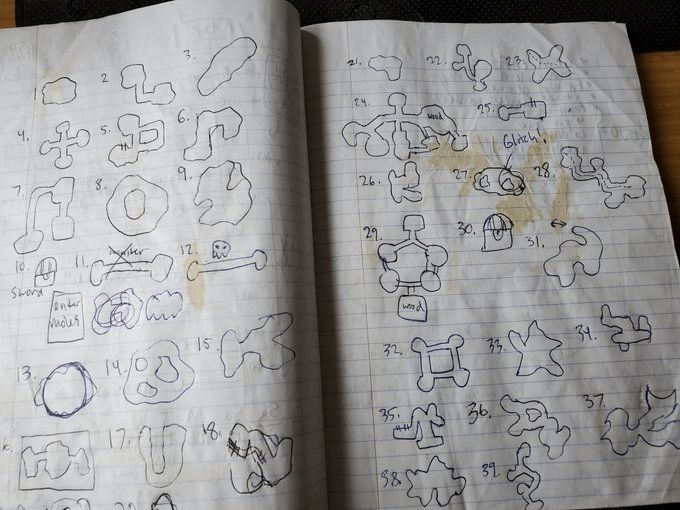 1.
2
3.
4.
5.
6.
7.
8.
9.
10.
sword
11.
12.
13.
14.
15
17.
18.
21.
22.
23.
24.
wood
25.
Glitch!
26.
27.
28.
29.
wood
30.
31.
32.
33.
34.
35.
36.
37.
38.
39.